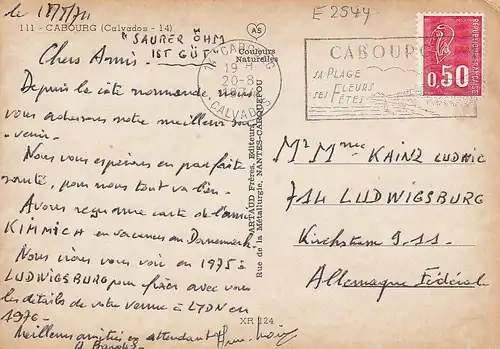 le 18/8/74
E 2544
111 - CABOURG (Calvados - 14)
"SAURER ÖHM
IST GÜT"
Couleurs
Naturelles
Chers Amis.
Depuis la côte normande nous
vous adressons notre meilleur sou
-venir.
Nous vous espérons en parfaite
santé, pour nous tout va bien.
Avons reçu une carte de l'ami
KIMMICH en vacances au Danemark.
Nous irons vous voir en 1975 à
LUDWIGSBURG pour fixer avec vous
les détails de votre venue à LYON en
1976.
Meilleures amitiés en attendant
ARTAUD Frères, Editeurs
Rue de la Métallurgie, NANTES-CARQUEFOU
XR 124
14 CABOURG
19 H
20-8
CALVADOS
CABOURG
SA PLAGE
SES FLEURS
FÊTES
0,50
Mr Mme KAINZ LUDWIG
714 LUDWIGSBURG
Allemagne Fédérale